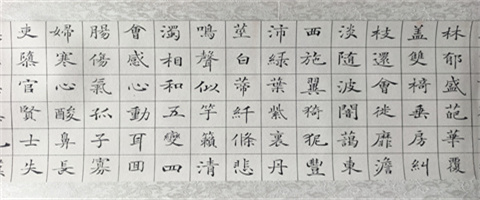 林郁盛葩華覆
盖雙椅垂房糾
枝還會徙靡澹
淡隨波闇藹東
西施翼猗狔豐
沛綠葉紫裹丹
莖白蒂纤條悲
鳴聲似竽籟清
濁相和五變四
會感心動耳囬
腸傷氣孤子寡
婦寒心酸鼻長
吏隳官賢士失